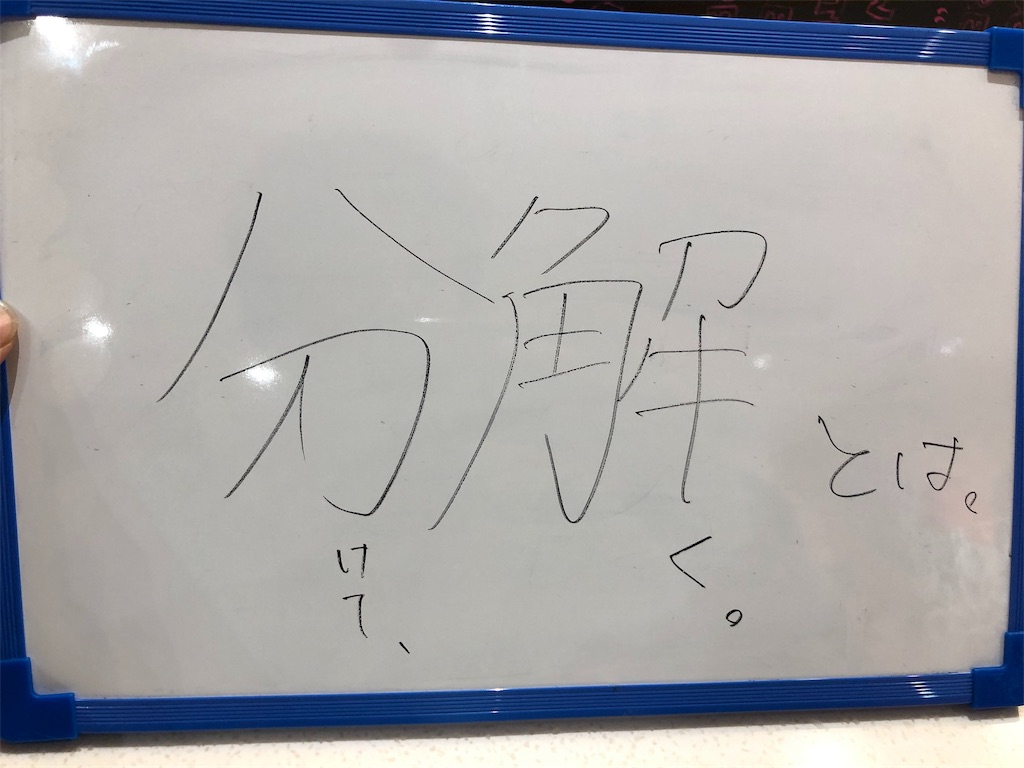 分解とは。
けて、
く。